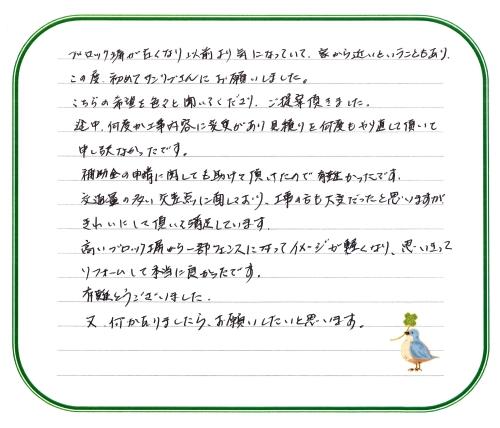 ブロック塀が古くなり以前より気になっていて、家から近いということもあり、
この度、初めてサンリブさんにお願いしました。
こちらの希望を色々と聞いてくださり、ご提案頂きました。
途中、何度か工事内容に変更があり見積りを何度もやり直して頂いて
申し訳なかったです。
補助金の申請に関しても助けて頂けたので有難かったです。
交通量の多い交差点に面しており、工事の方も大変だったと思いますが
きれいにして頂いて満足しています。
高いブロック塀から一部フェンスになってイメージが軽くなり、思いきって
リフォームして本当に良かったです。
有難とうございました。
又、何かありましたら、お願いしたいと思います。